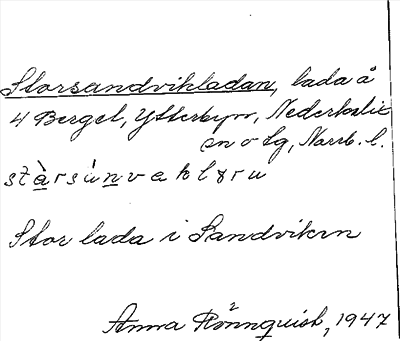 Storsandvikladan, lada å
4 Bergel, Ytterbyn, Nederkalix
sn o tg, Norrb. l.
Stor lada i Sandviken
Anna Rönnquist, 1947